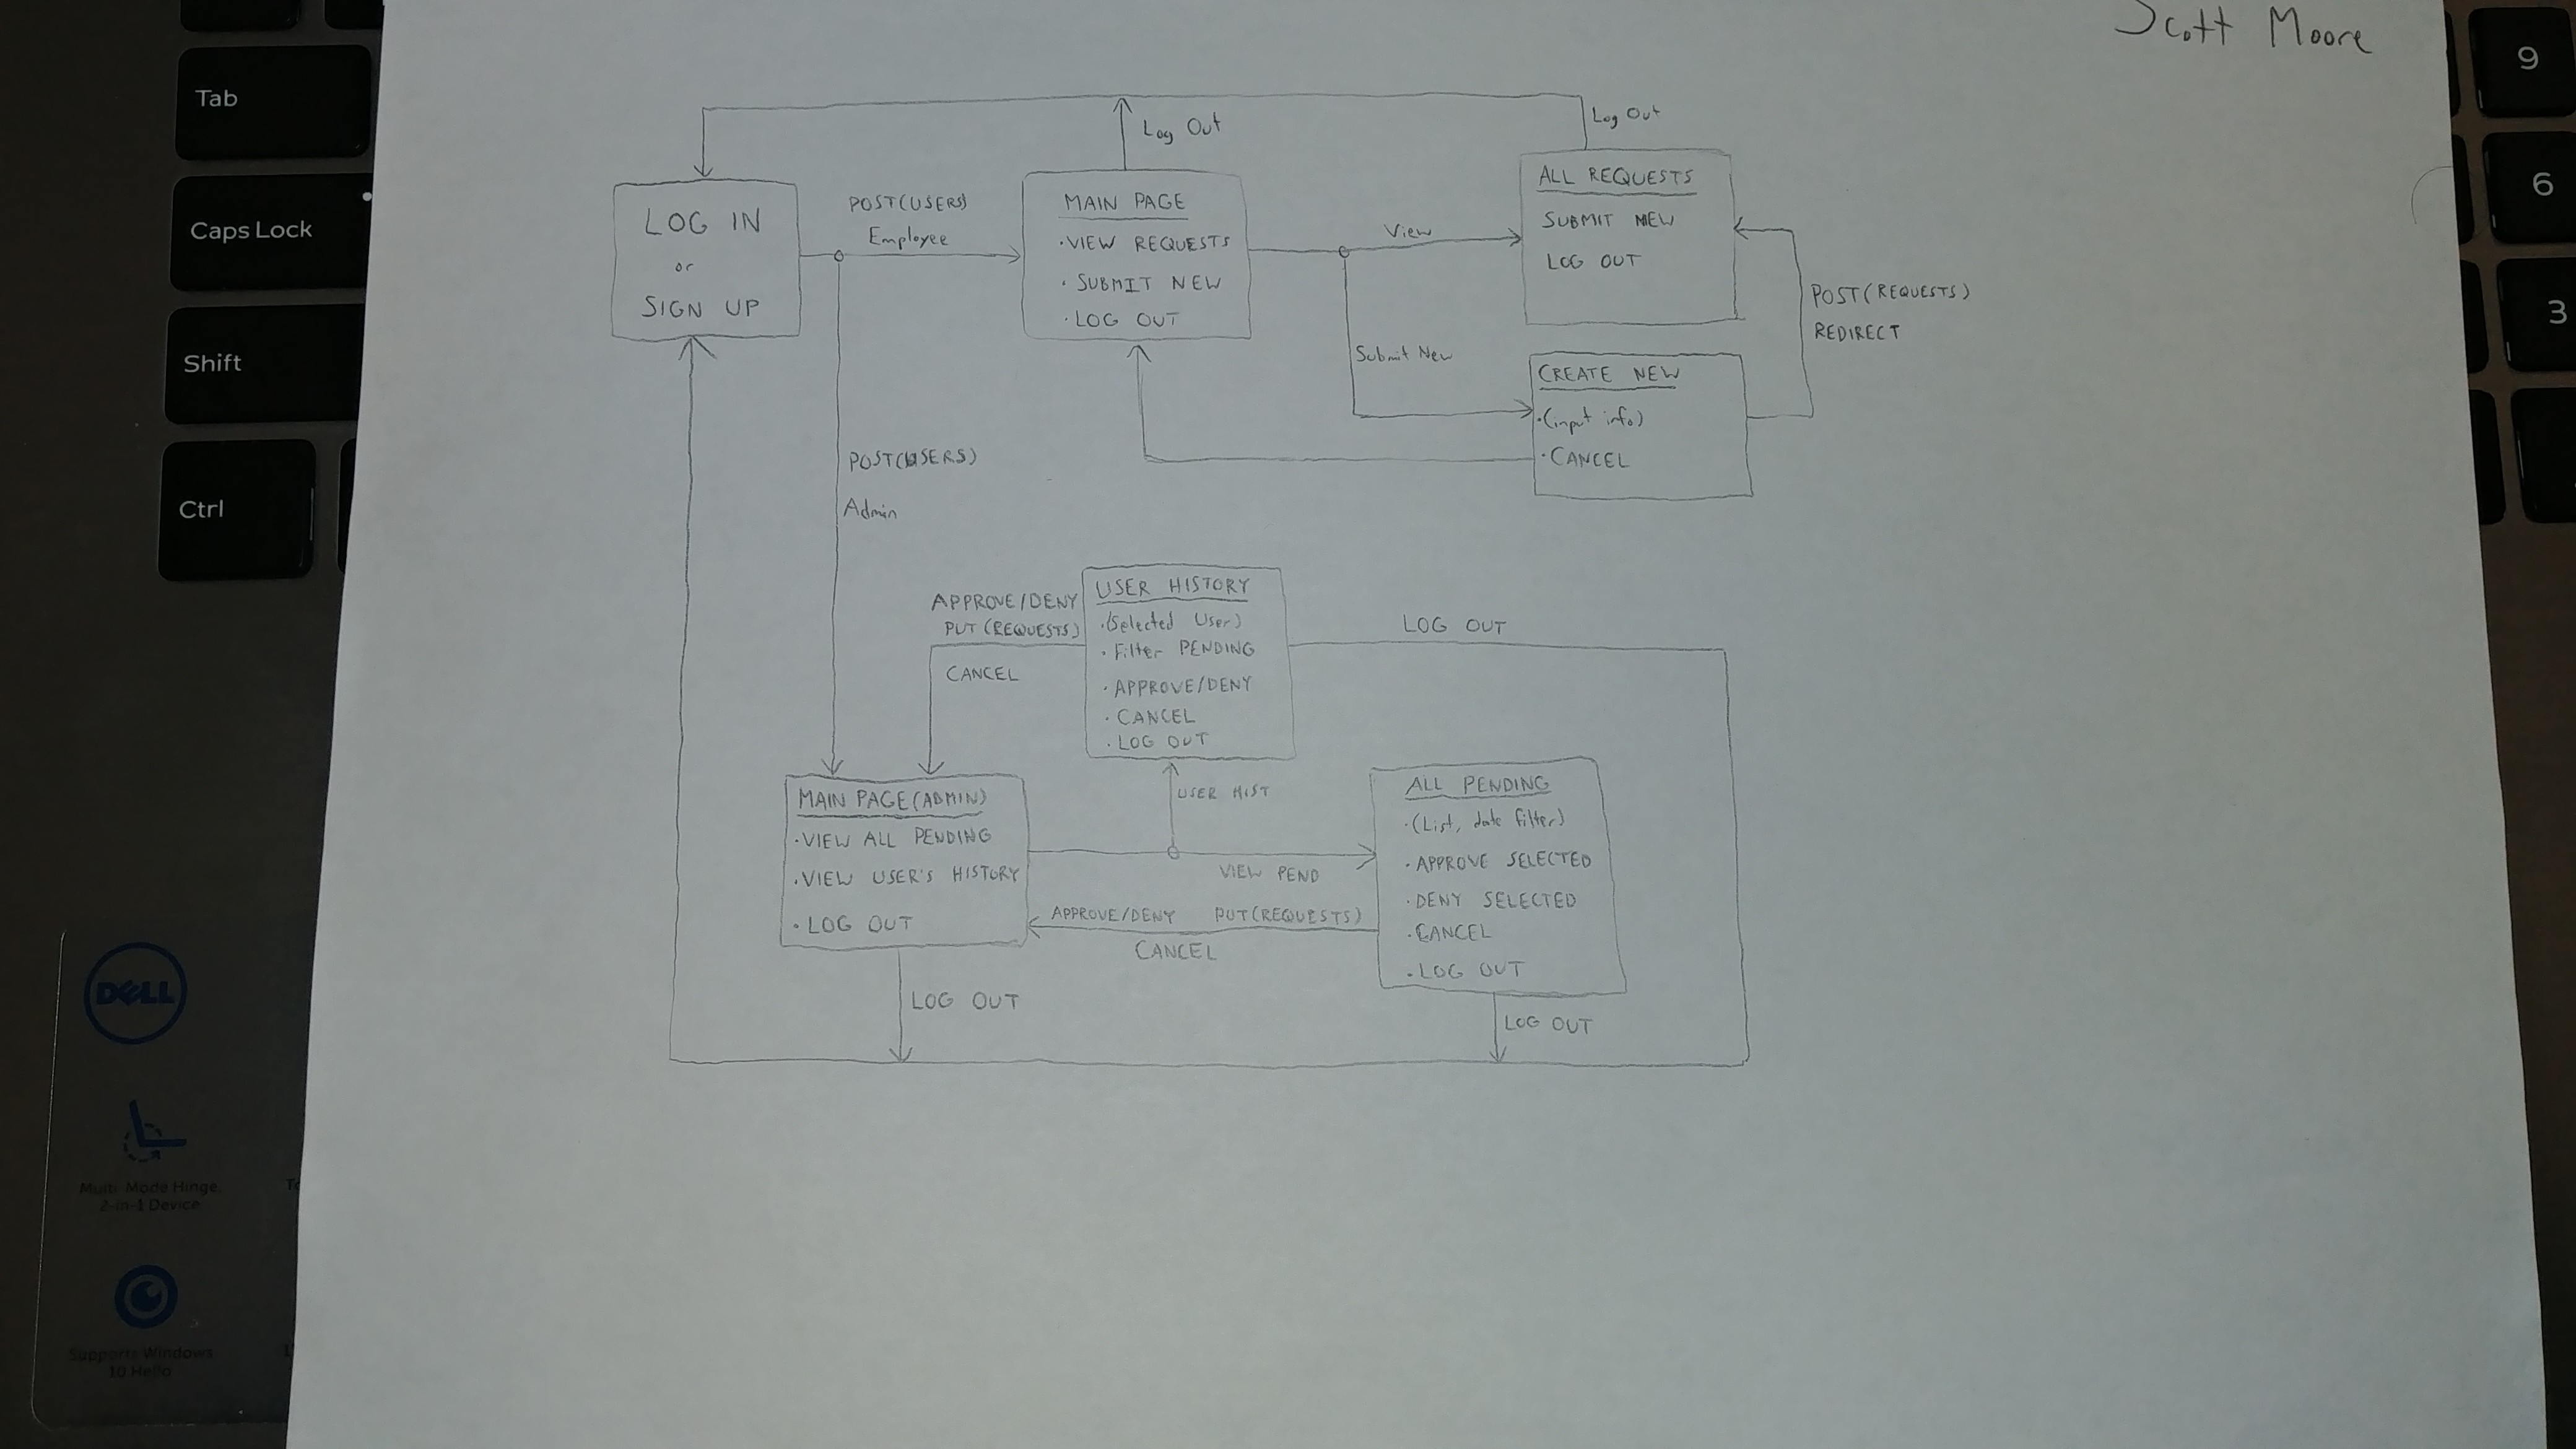 Scott Moore
Tab
Caps Lock
Shift
Ctrl
9
6
3
Log Out
Log Out
LOG IN
or
SIGN UP
POST(USERS)
Employee
MAIN PAGE
·VIEW REQUESTS
·SUBMIT NEW
·LOG OUT
View
ALL REQUESTS
SUBMIT NEW
LOG OUT
POST(REQUESTS)
REDIRECT
Submit New
CREATE NEW
·(input info)
·CANCEL
POST(USERS)
Admin
APPROVE/DENY
PUT(REQUESTS)
CANCEL
USER HISTORY
·(Selected User)
·Filter PENDING
·APPROVE/DENY
·CANCEL
·LOG OUT
LOG OUT
MAIN PAGE(ADMIN)
·VIEW ALL PENDING
·VIEW USER'S HISTORY
·LOG OUT
USER HIST
VIEW PEND
APPROVE/DENY PUT(REQUESTS)
CANCEL
ALL PENDING
·(List, date filter)
·APPROVE SELECTED
·DENY SELECTED
·CANCEL
·LOG OUT
LOG OUT
LOG OUT
DELL
Multi-Mode Hinge,
2-in-1 Device
Supports Windows
10 Hello